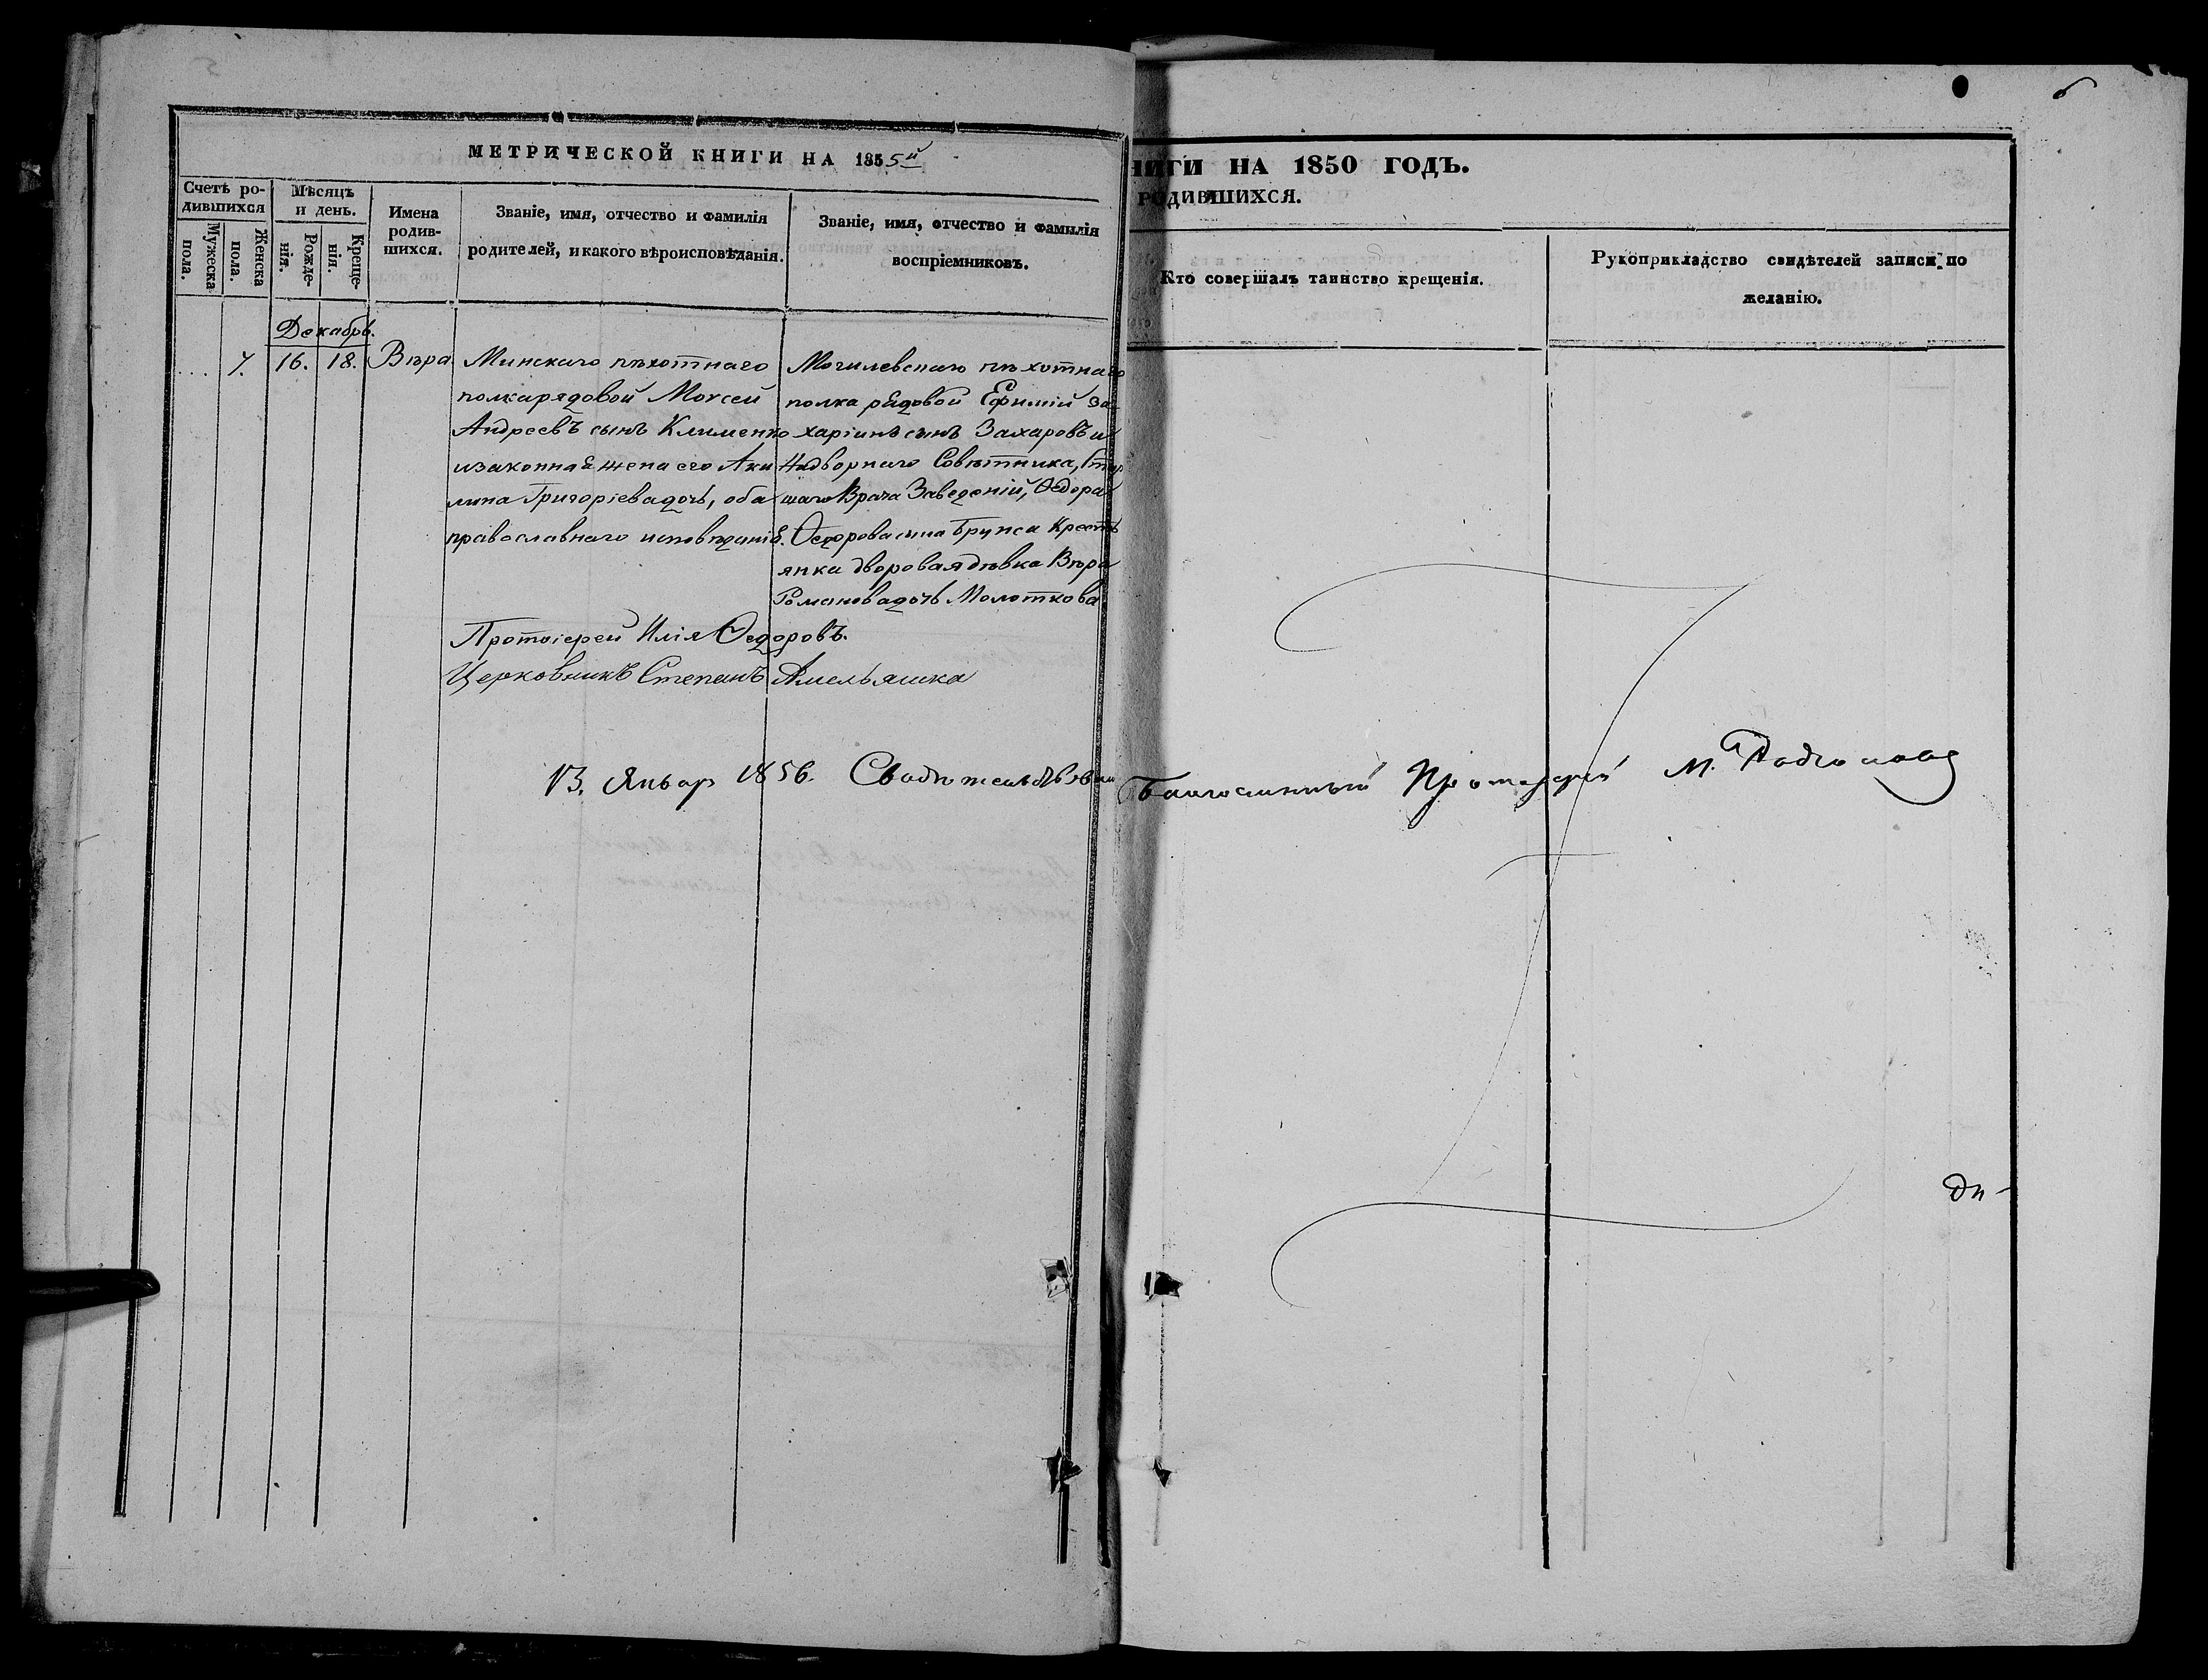 6
МЕТРИЧЕСКОЙ КНИГИ НА 1855й
Счетъ ро-
дившихся
Мужеска
пола.
Женска
пола.
Мѣсяцъ
и день.
Рожде-
нія.
Креще-
нія.
Имена
родив-
шихся.
Званіе, имя, отчество и фамилія
родителей, и какого вѣроисповѣданія.
Званіе, имя, отчество и фамилія
воспріемниковъ.
Декабрь.
7. 16. 18. Вѣра
Минскаго пѣхотнаго
полка рядовой Моѵсей
Андреевъ сынъ Клименко
и законная жена его Аки
лина Григоріева дочь, оба
православнаго исповѣданія.
Могилевскаго пѣхотнаго
полка рядовой Ефимій За-
харіинъ сынъ Захаровъ и
Надворнаго Совѣтника, Стар
шаго Врача Заведеній, Ѳедора
Ѳедорова сына Брунса Крестъ
янка дворовая дѣвка Вѣра
Романова дочь Молоткова
Протоіерей Илія Ѳедоровъ.
Церковникъ Степанъ Амельяшка
13. Январ 1856.
НИГИ НА 1850 ГОДЪ.
РОДИВШИХСЯ.
Кто совершалъ таинство крещенія.
Рукоприкладство свидѣтелей записи по
желанію.
Благочинный Протоіерей М.